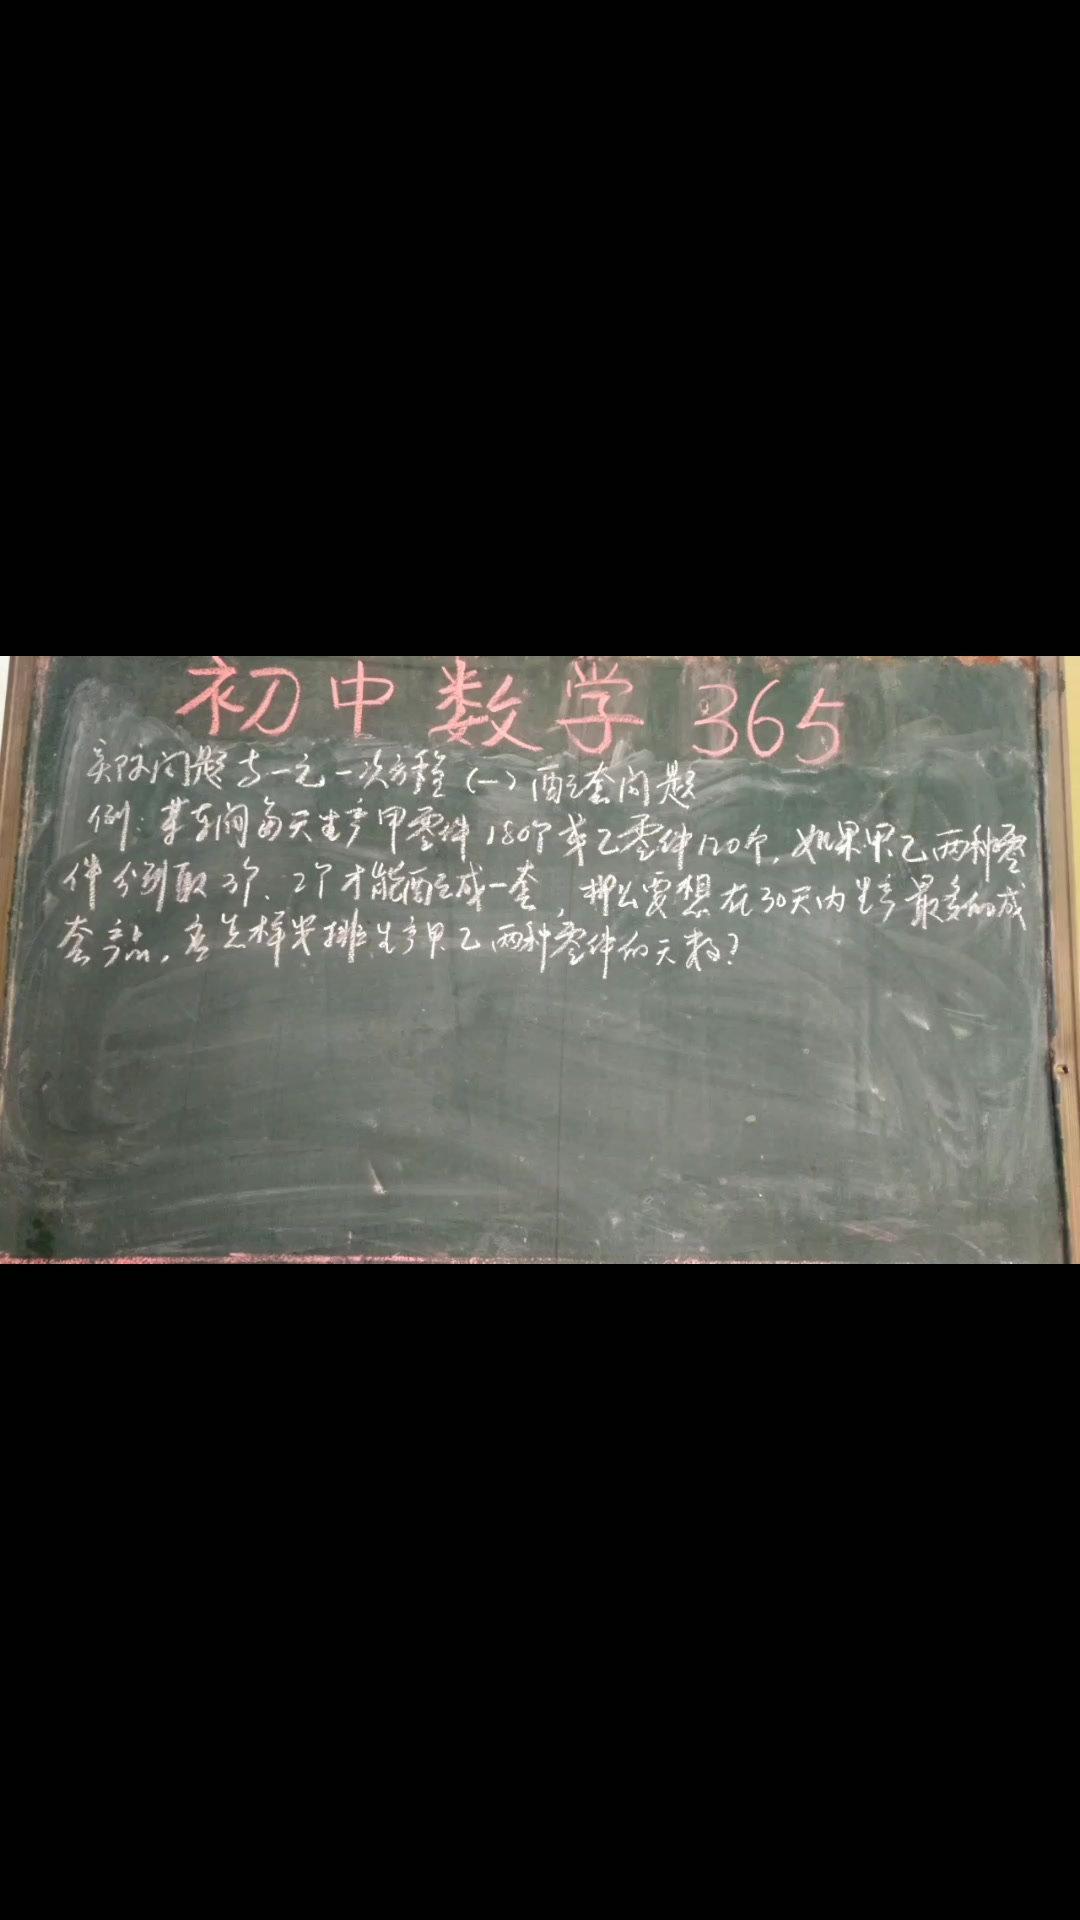 初中数学365
实际问题与一元一次方程(一)配套问题
例:某车间每天生产甲零件180个或乙零件120个,如果甲乙两种零
件分别取3个、2个才能配成一套,那么要想在30天内生产最多的成
套产品,应怎样安排生产甲乙两种零件的天数?